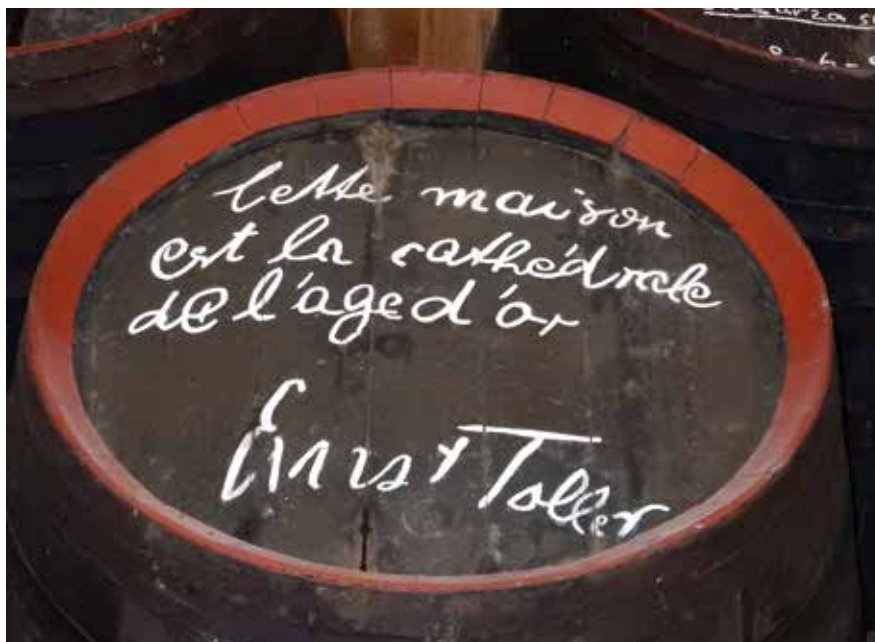 Cette maison
est la cathédrale
de l'age d'or
Ernst Toller